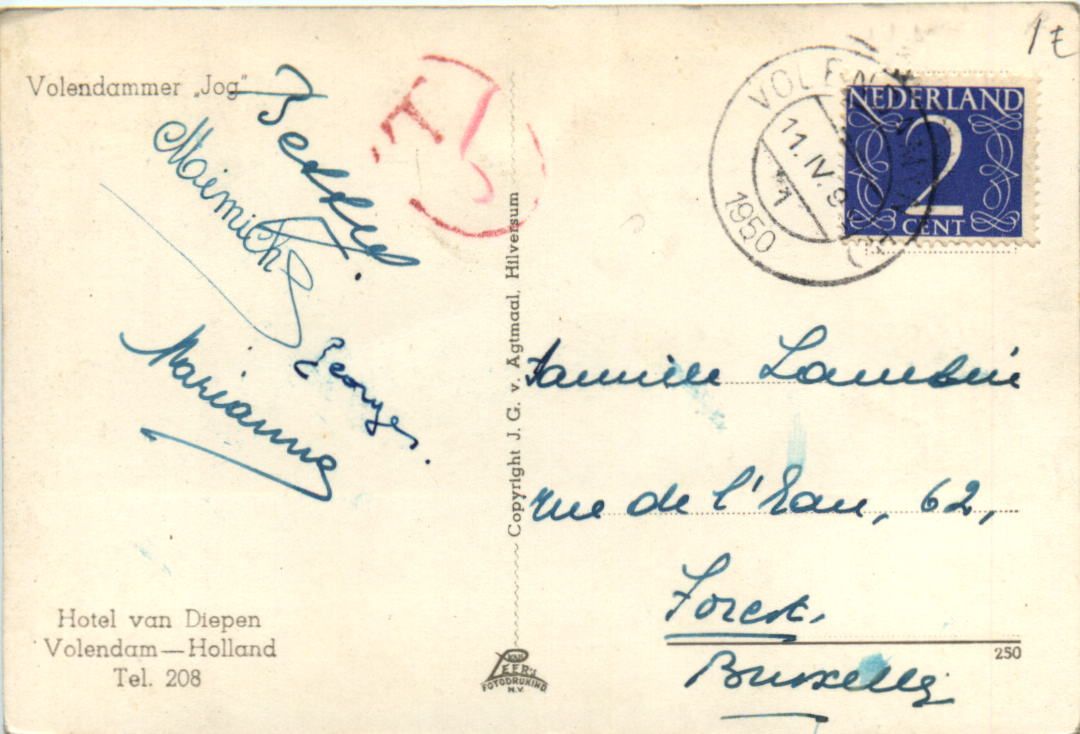 1E
Volendammer „Jog"
Marianne
Georges.
Hotel van Diepen
Volendam—Holland
Tel. 208
Copyright J. G. v. Agtmaal, Hilversum
VAN LEER'S
FOTODRUKIND.
N.V.
T
VOLENDAM
11.IV.9
1950
NEDERLAND
2
CENT
Famille Lambin
rue de l'Eau, 62,
Forest.
Bruxelles
250